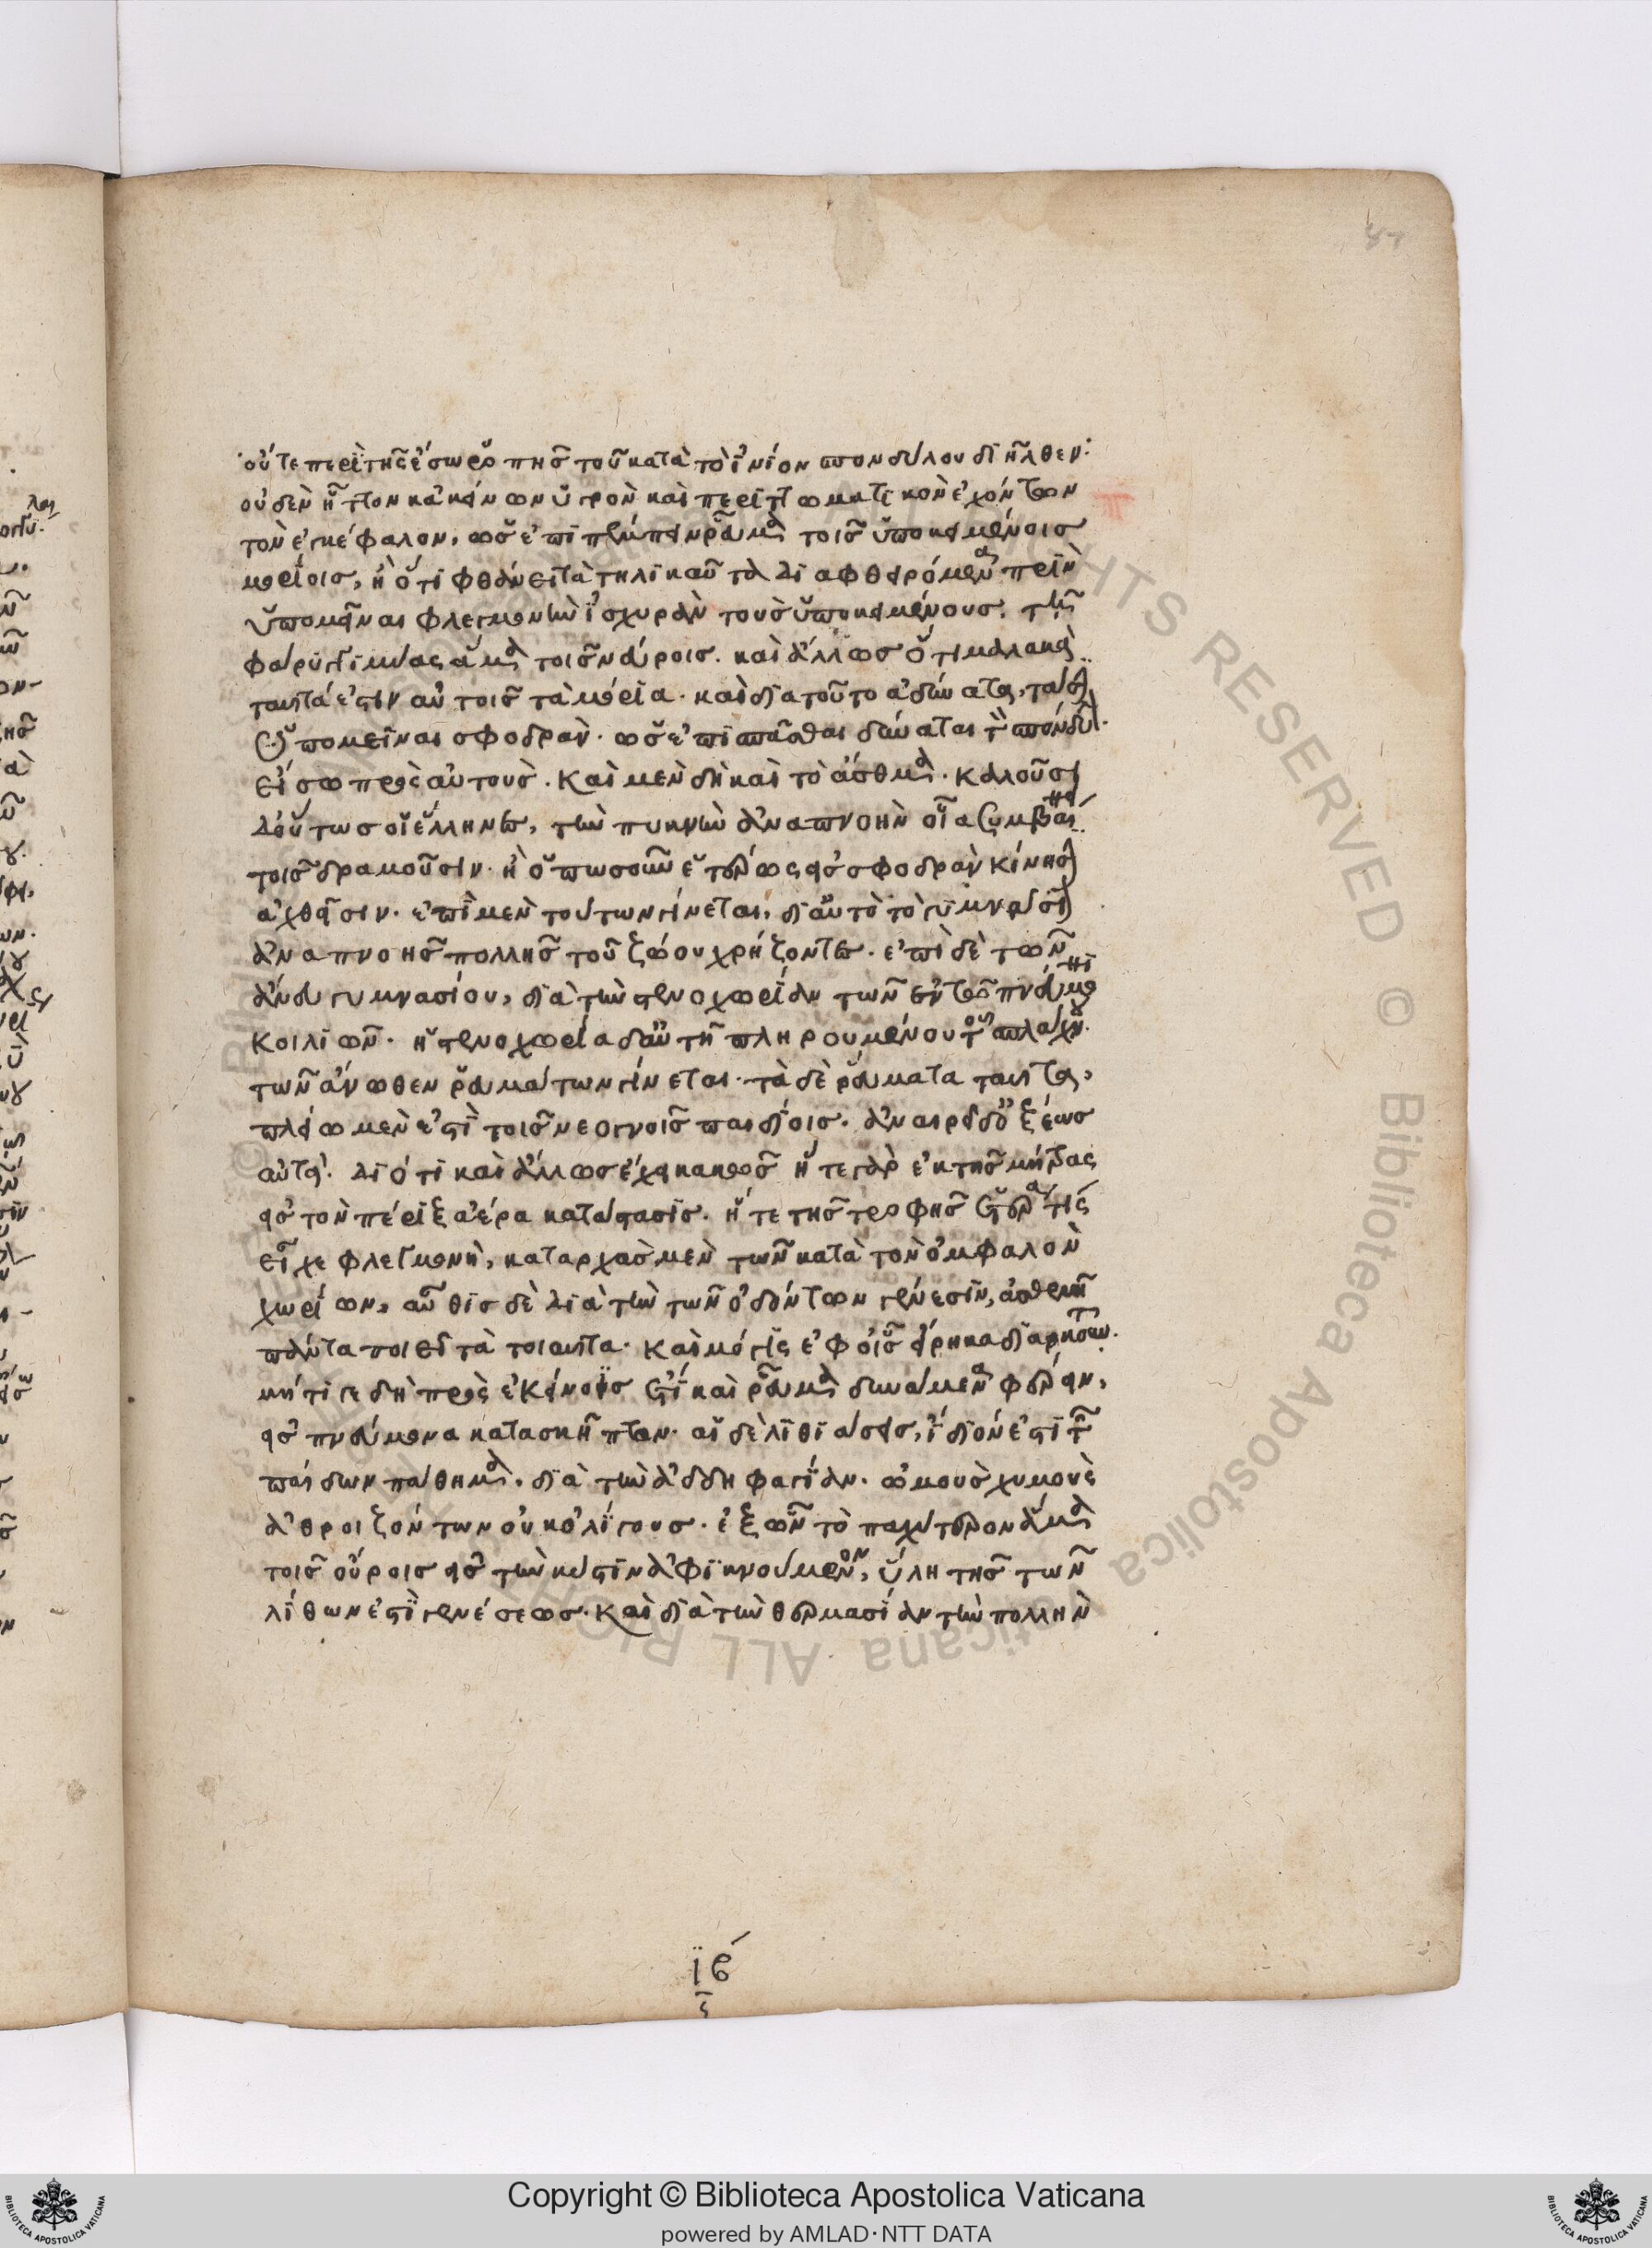 οὔτε περὶ τῆς ἔσω ῥοπῆς τοῦ κατὰ τὸ ἰνίον σπονδύλου διῆλθεν·
οὐδὲν ἧττον κἀκείνων ὑγρὸν καὶ περιττωματικὸν ἐχόντων
τὸν ἐγκέφαλον, ὡς ἐπιπέμπειν ῥεῦμα τοῖς ὑποκειμένοις
μορίοις, ἢ ὅτι φθάνει τὰ τηλικαῦτα διαφθειρόμενα πρὶν
ὑπομεῖναι φλεγμονὴν ἰσχυρὰν τοὺς ὑποκειμένους τῆς
φάρυγγι μύας ἅμα τοῖς νεύροις. καὶ ἄλλως ὅτι μαλακὰ
ταῦτά ἐστιν αὐτοῖς τὰ μόρια. καὶ διὰ τοῦτο ἀδύνατα, τάσιν
ὑπομεῖναι σφοδρὰν. ὡς ἐπισπᾶσθαι δύνασθαι τὸν σπόνδυλον
εἴσω πρὸς αὐτούς. καὶ μὲν δὴ καὶ τὸ ἄσθμα. καλοῦσι
δ' οὕτως οἱ ἕλληνες, τὴν πυκνὴν ἀναπνοὴν οἵα συμβαίνει
τοῖς δραμοῦσιν. ἢ ὁπωσοῦν ἑτέρως εἰς σφοδρὰν κίνησιν
ἀχθεῖσιν. ἐπὶ μὲν τούτων γίνεται, δι' αὐτὸ τὸ γυμνάσιον
ἀναπνοῆς πολλῆς τοῦ ζώου χρήζοντος. ἐπὶ δὲ τῶν
ἄνευ γυμνασίου, διὰ τὴν στενοχωρίαν τῶν ἐν τῷ πνεύμονι
κοιλιῶν. ἡ στενοχωρία δ' αὕτη πληρουμένου τοῦ σπλάγχνου
τῶν ἄνωθεν ῥευμάτων γίνεται. τὰ δὲ ῥεύματα ταῦτα,
πλείω μέν ἐστι τοῖς νεογνοῖς παιδίοις. ἀναιρεῖ δ' ὀξέως
αὐτά. διότι καὶ ἄλλως ἔχει κακῶς ἥ τε γὰρ ἐκ τῆς μήτρας
εἰς τὸν πέριξ ἀέρα κατάστασις. ἥ τε τῆς τροφῆς ὑστεραία τις
εἶχε φλεγμονὴ, καταρχὰς μὲν τῶν κατὰ τὸν ὀμφαλὸν
χωρίων, αὖθις δὲ διὰ τὴν τῶν ὀδόντων γένεσιν, ἀσθενῆ
πάντα ποιεῖ τὰ τοιαῦτα. καὶ μόγις ἐφ' οἷς εἴρηκα διαρκοῦν.
μήτι γε δὴ πρὸς ἐκείνοις ἔτι καὶ ῥεῦμα δυνάμενα φέρειν,
εἰς πνεύμονα κατασκῆπτον. αἱ δὲ λιθιάσεις, ἴδιόν ἐστι τῶν
παίδων πάθημα. διὰ τὴν ἀδδηφαγίαν. ὠμοὺς χυμοὺς
ἀθροιζόντων οὐκ ὀλίγους. ἐξ ὧν τὸ παχύτερον ἅμα
τοῖς οὔροις εἰς τὴν κύστιν ἀφικνούμενον, ὕλη τῆς τῶν
λίθων ἐστὶ γενέσεως. καὶ διὰ τὴν θερμασίαν τὴν πολλὴν
ιϛ